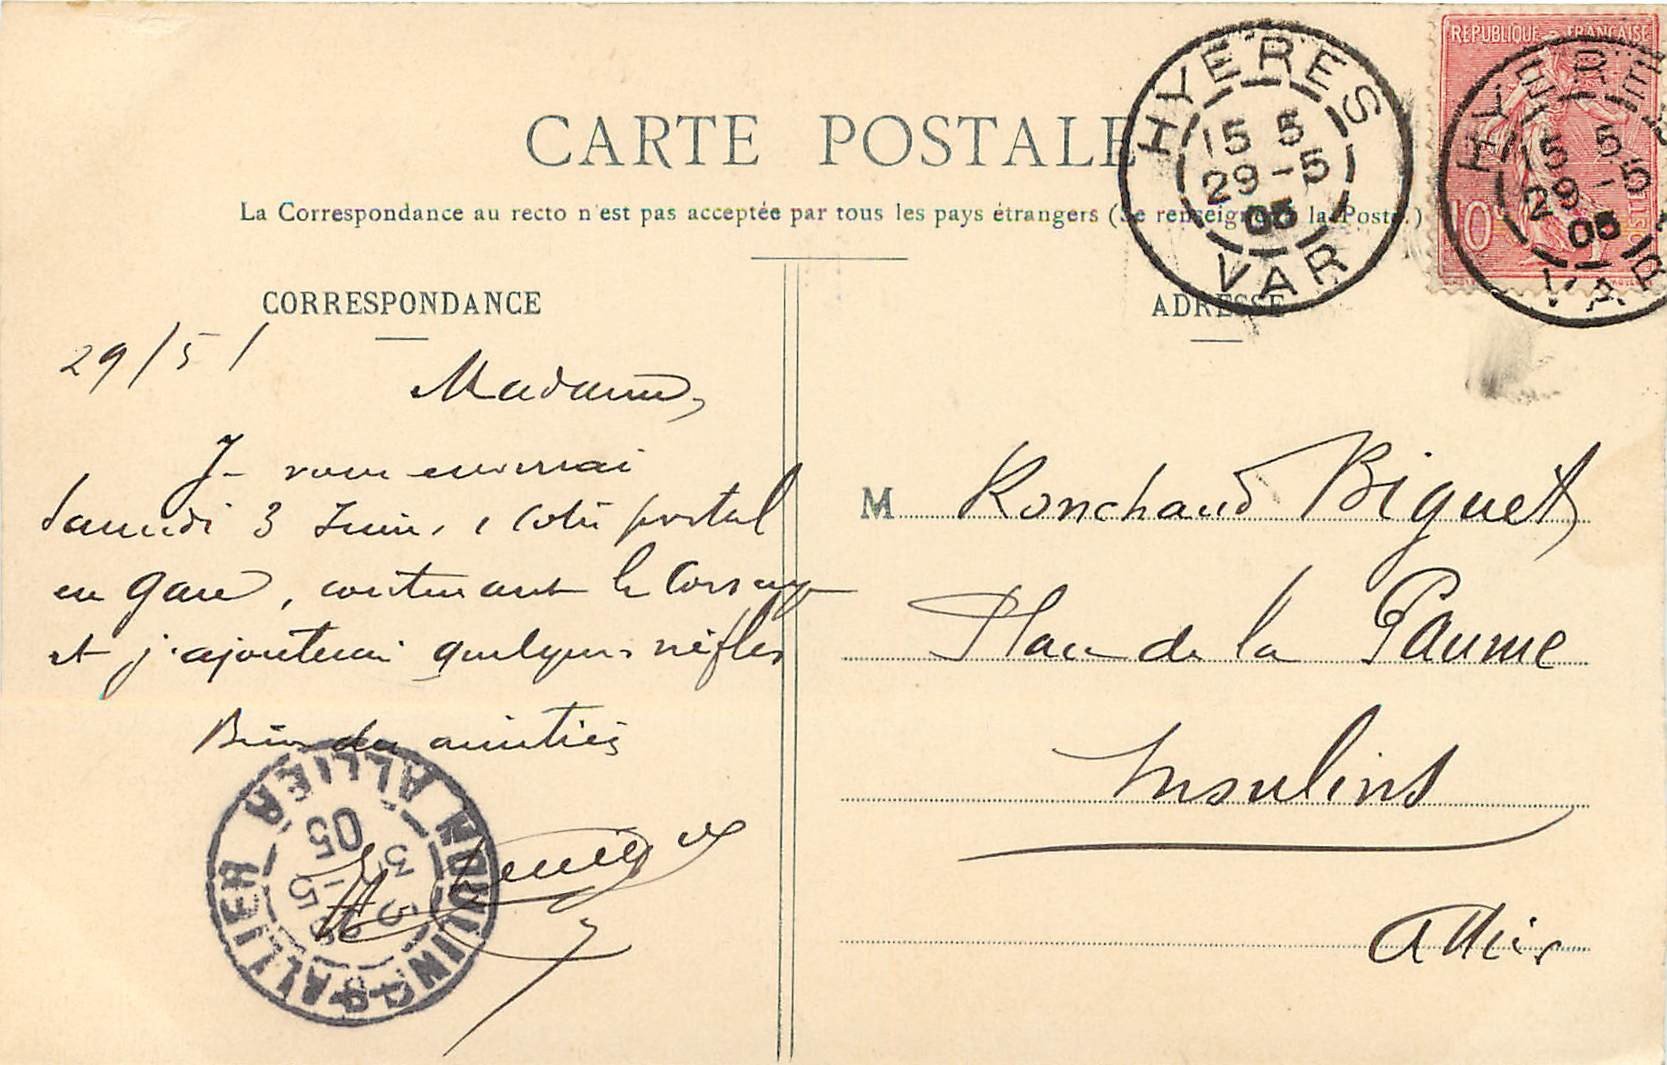 CARTE POSTALE
La Correspondance au recto n'est pas acceptée par tous les pays étrangers (Se renseigner à la Poste.)
CORRESPONDANCE
29/5/
Madame,
Je vous enverrai
Samedi 3 Juin, 1 Colis postal
en gare, contenant le Corsage
et j'ajouterai quelques nèfles
Bien des amitiés
ADRESSE
M Ronchaud Biguet
Place de la Paume
Moulins
Allier
HYERES
15 5
29-5
05
VAR
REPUBLIQUE FRANÇAISE
10c
POSTES
HYERES
15 5
29-5
05
VAR
MOULINS ALLIER
ALLIER
05